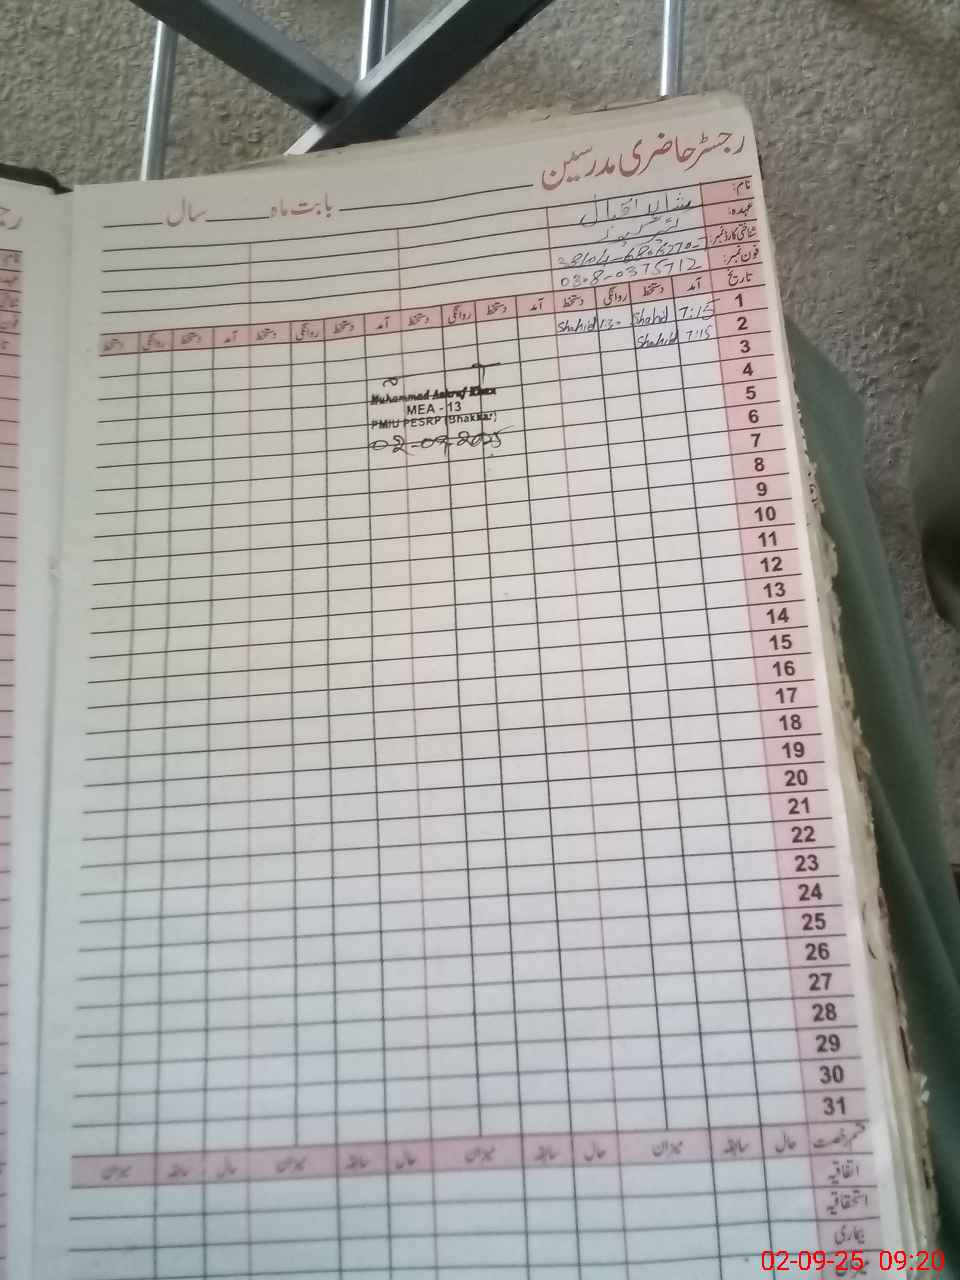 رجسٹر حاضری مدرسین
بابت ماہ سال
نام: شاہد اقبال
عہدہ:
شناختی کارڈ نمبر:
فون نمبر: 0308-0375712
تاریخ آمد دستخط روانگی دستخط آمد دستخط روانگی دستخط آمد دستخط روانگی دستخط آمد دستخط روانگی دستخط
1 7:15 Shahid 1:30 Shahid
2 7:15 Shahid
3
4
Muhammad Ashraf Khan
5
MEA - 13
PMIU PESRP (Bhakkar)
6
02-09-2025
7
8
9
10
11
12
13
14
15
16
17
18
19
20
21
22
23
24
25
26
27
28
29
30
31
قسم رخصت حال سابقہ میزان حال سابقہ میزان حال سابقہ میزان حال سابقہ میزان
اتفاقیہ
استحقاقیہ
بیماری
02-09-25 09:20